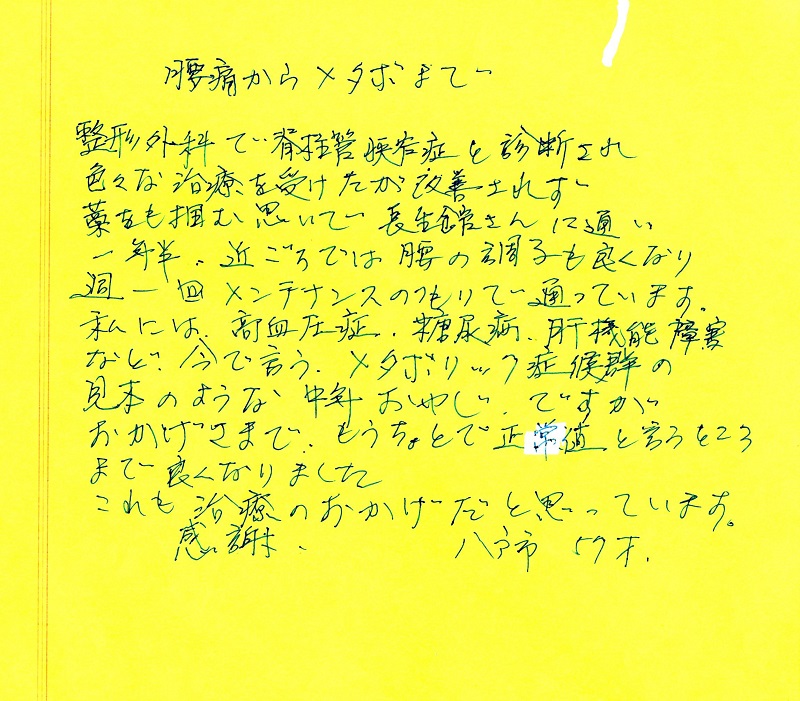 腰痛からメタボまで
整形外科で脊柱管狭窄症と診断され
色々な治療を受けたが改善されず
藁をも掴む思いで長生館さんに通い
一年半、近ごろでは腰の調子も良くなり
週一回メンテナンスのつもりで通っています。
私には、高血圧症、糖尿病、肝機能障害
など、今で言う、メタボリック症候群の
見本のような中年おやじ、ですが
おかげさまで、もうちょとで正常値と言うところ
まで良くなりました
これも治療のおかげだと思っています。
感謝、 八戸市 57才、